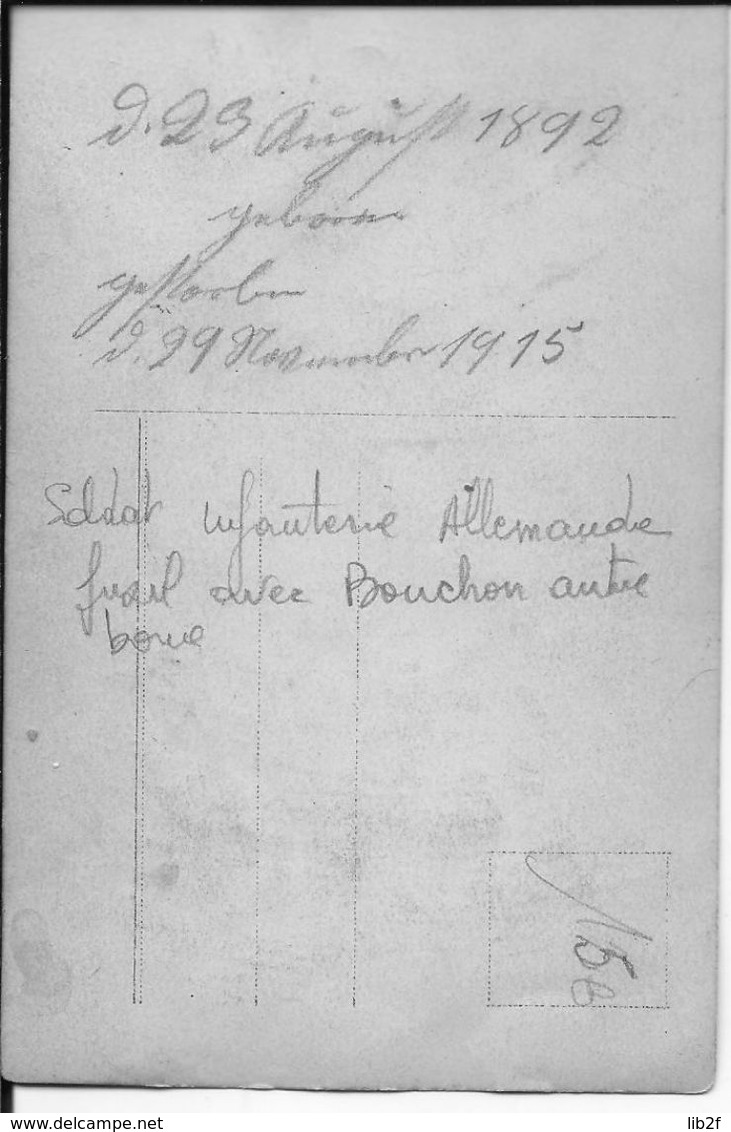 d. 23 August 1892
geboren
gestorben
d. 29 November 1915
Soldat infanterie Allemande
fusil avec Bouchon antie
boue
15 e
© Delcampe.net
lib2f